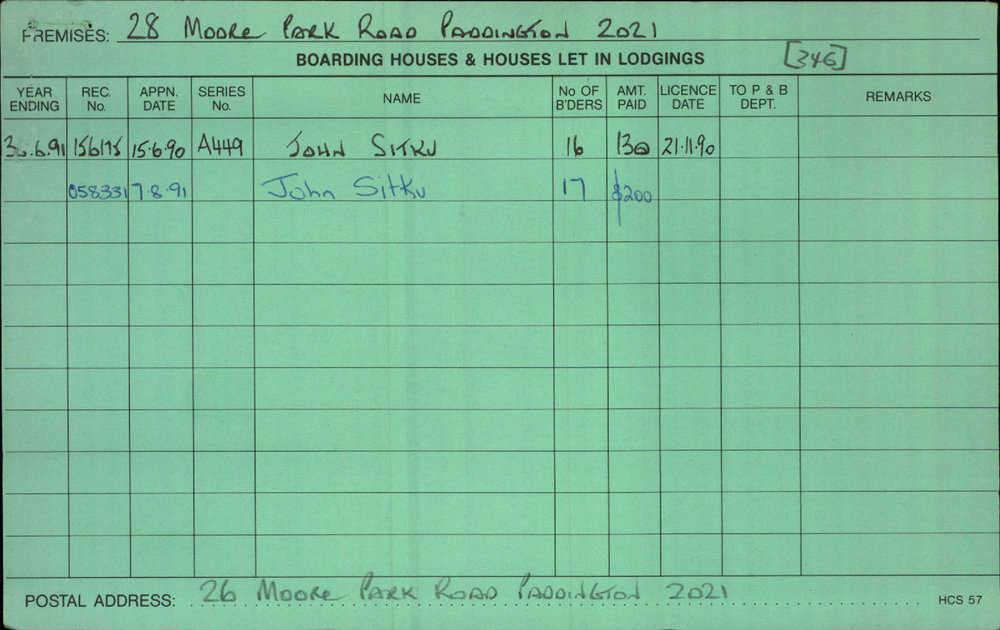 PREMISES: 28 Moore Park Road Paddington 2021
BOARDING HOUSES & HOUSES LET IN LODGINGS [346]
YEAR ENDING REC. No. APPN. DATE SERIES No. NAME No OF B'DERS AMT. PAID LICENCE DATE TO P & B DEPT. REMARKS
30.6.91 156175 15.6.90 A449 John Sitku 16 130 21.11.90
058331 7.8.91 John Sitku 17 $200
POSTAL ADDRESS: 26 Moore Park Road Paddington 2021 HCS 57